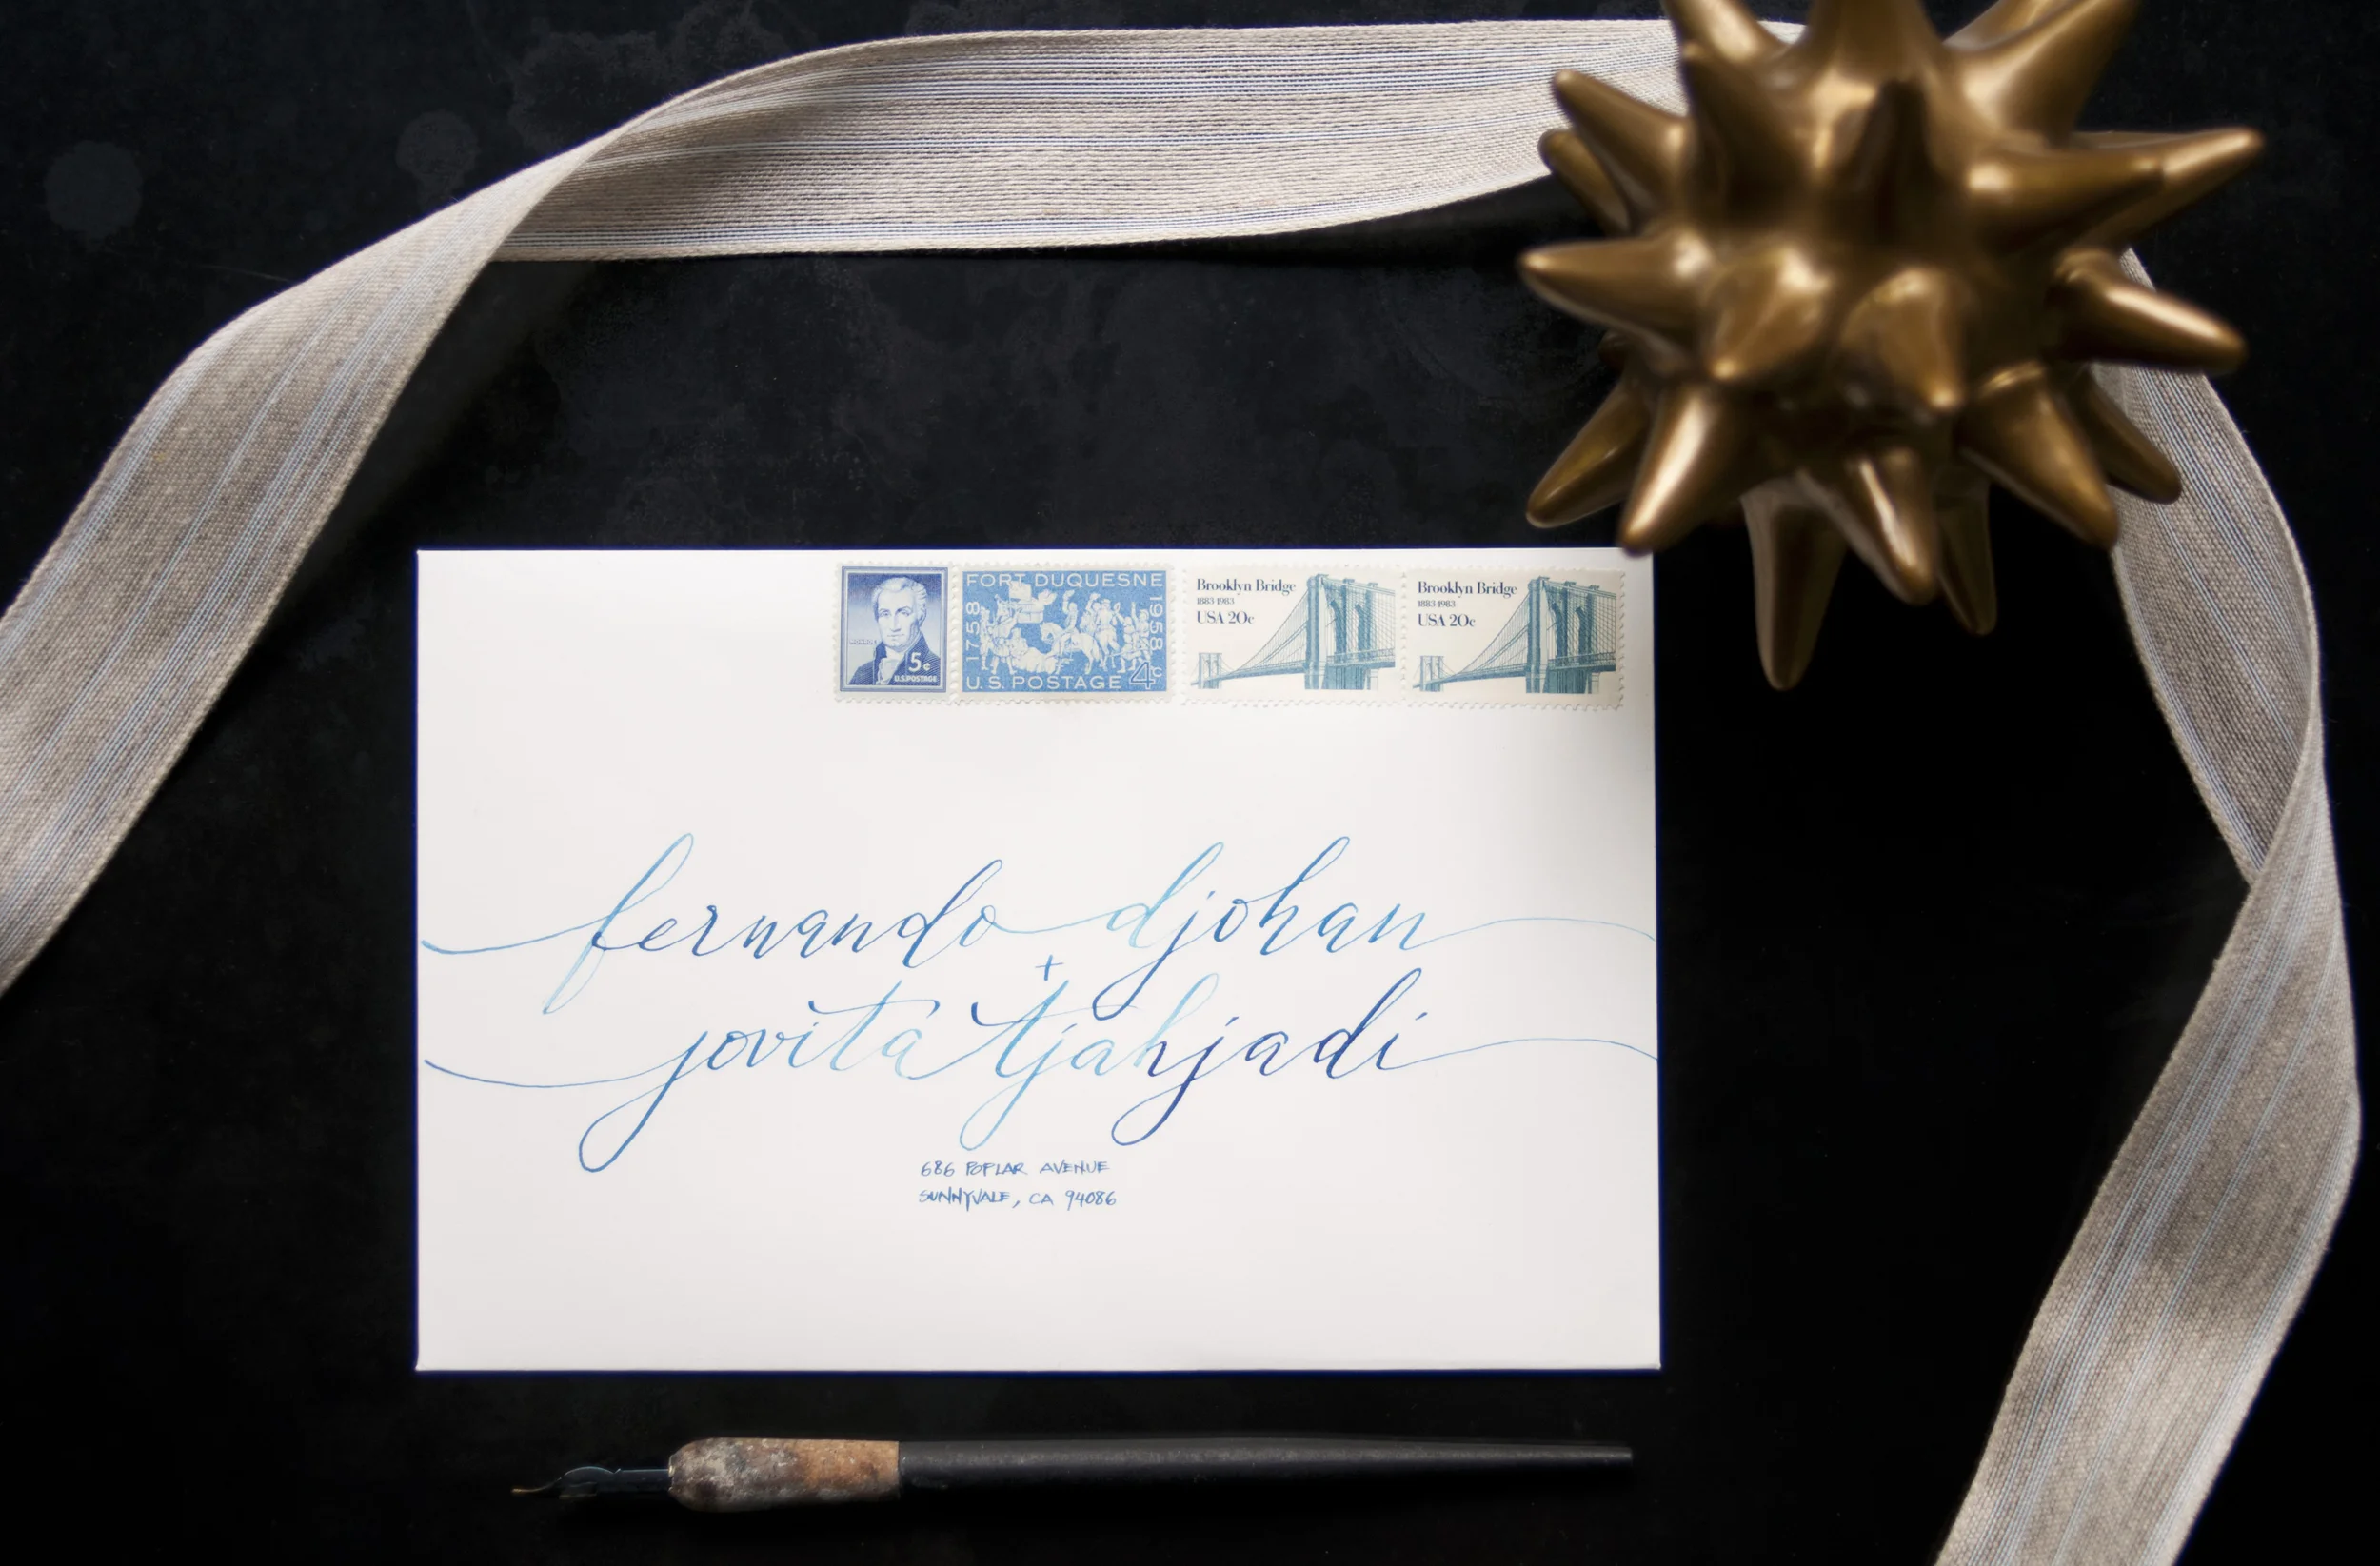 5¢
U.S. POSTAGE
FORT DUQUESNE
1758
1958
U.S. POSTAGE 4¢
Brooklyn Bridge
1883-1983
USA 20c
Brooklyn Bridge
1883-1983
USA 20c
fernando djohan
+
jovita tjahjadi
686 POPLAR AVENUE
SUNNYVALE, CA 94086